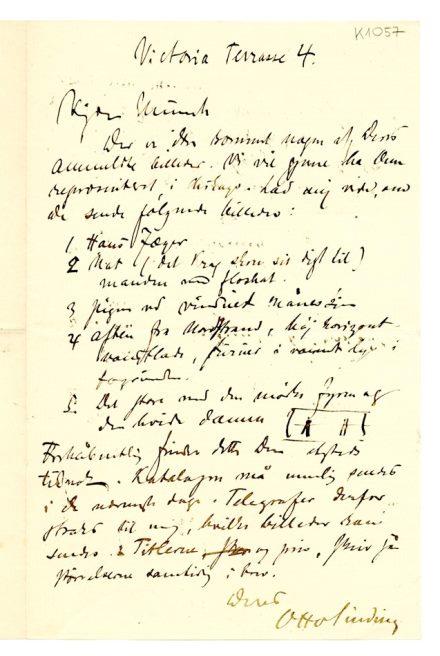 K1057
Victoria Terrasse 4.
Kjære Munch
Der er ikke kommet nogen af Deres
anmeldte billeder. Vi vil gjerne ha Dem
repræsenteret i Chicago. Lad mig vide, om
De sende følgende billeder:
1 Hans Jæger
2 Nat (det Vrag skrev sit digt til)
manden med floshat.
3 pigen ved vinduet måneskin
4 aften fra Nordstrand, høj horizont
vandflade, furuer i
forgrunden.
5. Det store med den mørke fyren og
den hvide damen
Forhåbentlig finder dette Dem
. Katalogen må nemlig sendes
i de nærmeste dage. Telegrafer derfor
straks til mig, hvilke billeder kan
sendes. Titlerne, og pris, skriv så
størrelserne samtidig i brev.
Deres
Otto Sinding